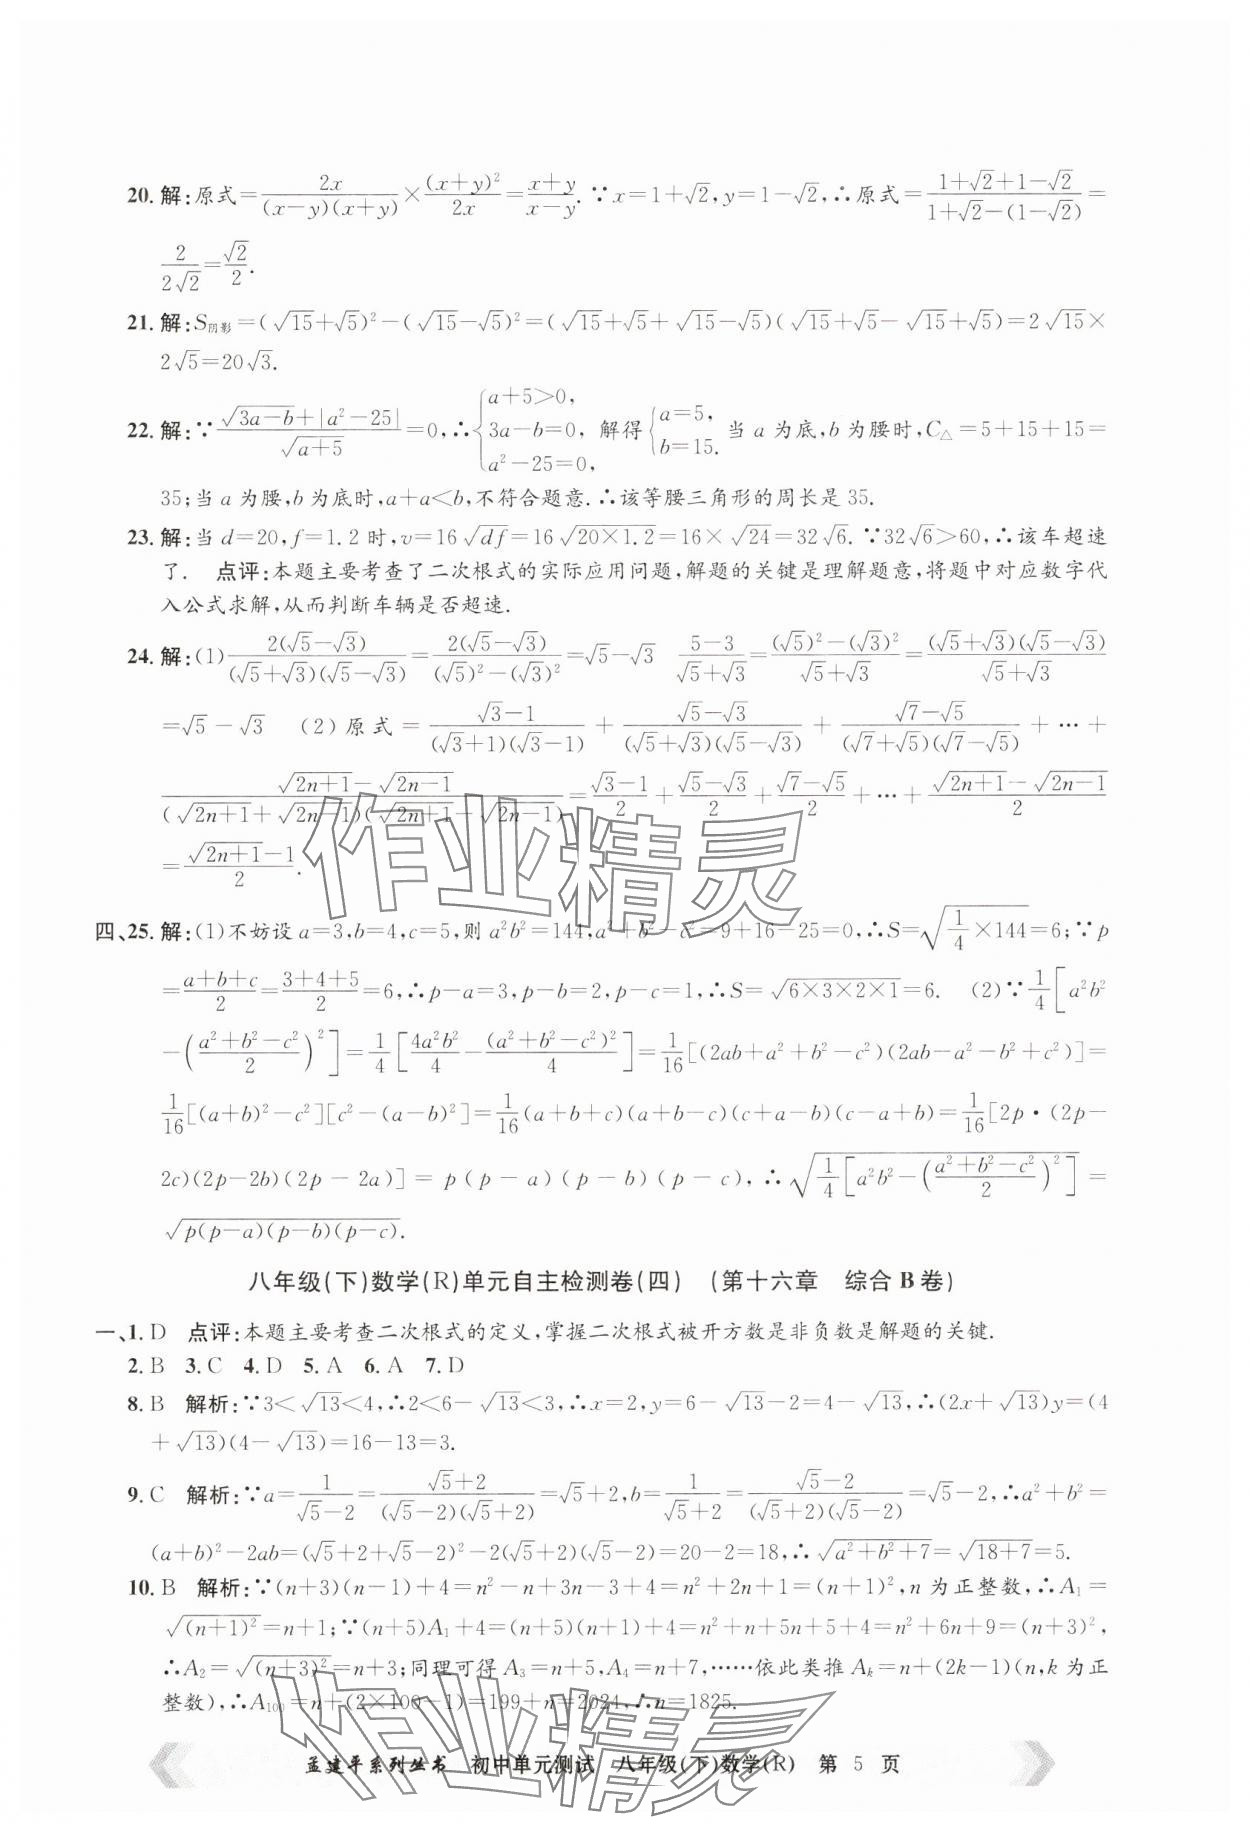 20. 解:原式=\frac{2x}{(x-y)(x+y)}×\frac{(x+y)²}{2x}=\frac{x+y}{x-y}. ∵x=1+√2,y=1-√2,∴原式=\frac{1+√2+1-√2}{1+√2-(1-√2)}=
\frac{2}{2√2}=\frac{√2}{2}.
21. 解:S阴影=(√15+√5)²-(√15-√5)²=(√15+√5+√15-√5)(√15+√5-√15+√5)=2√15×
2√5=20√3.
22. 解:∵\frac{\sqrt{3a-b}+|a²-25|}{\sqrt{a+5}}=0,∴{a+5>0, 3a-b=0, a²-25=0, 解得{a=5, b=15. 当a为底,b为腰时,C△=5+15+15=
35;当a为腰,b为底时,a+a<b,不符合题意.∴该等腰三角形的周长是35.
23. 解:当d=20,f=1.2时,v=16\sqrt{df}=16\sqrt{20×1.2}=16×√24=32√6. ∵32√6>60,∴该车超速
了. 点评:本题主要考查了二次根式的实际应用问题,解题的关键是理解题意,将题中对应数字代
入公式求解,从而判断车辆是否超速.
24. 解:(1)\frac{2(√5-√3)}{(√5+√3)(√5-√3)}=\frac{2(√5-√3)}{(√5)²-(√3)²}=√5-√3 \frac{5-3}{√5+√3}=\frac{(√5)²-(√3)²}{√5+√3}=\frac{(√5+√3)(√5-√3)}{√5+√3}
=√5-√3 (2)原式=\frac{√3-1}{(√3+1)(√3-1)}+\frac{√5-√3}{(√5+√3)(√5-√3)}+\frac{√7-√5}{(√7+√5)(√7-√5)}+…+
\frac{\sqrt{2n+1}-\sqrt{2n-1}}{(\sqrt{2n+1}+\sqrt{2n-1})(\sqrt{2n+1}-\sqrt{2n-1})}=\frac{√3-1}{2}+\frac{√5-√3}{2}+\frac{√7-√5}{2}+…+\frac{\sqrt{2n+1}-\sqrt{2n-1}}{2}
=\frac{\sqrt{2n+1}-1}{2}.
四、25. 解:(1)不妨设a=3,b=4,c=5,则a²b²=144,a²+b²-c²=9+16-25=0,∴S=\sqrt{\frac{1}{4}×144}=6;∵p
=\frac{a+b+c}{2}=\frac{3+4+5}{2}=6,∴p-a=3,p-b=2,p-c=1,∴S=\sqrt{6×3×2×1}=6. (2)∵\frac{1}{4}[a²b²
-(\frac{a²+b²-c²}{2})²]=\frac{1}{4}[\frac{4a²b²}{4}-\frac{(a²+b²-c²)²}{4}]=\frac{1}{16}[(2ab+a²+b²-c²)(2ab-a²-b²+c²)]=
\frac{1}{16}[(a+b)²-c²][c²-(a-b)²]=\frac{1}{16}(a+b+c)(a+b-c)(c+a-b)(c-a+b)=\frac{1}{16}[2p·(2p-
2c)(2p-2b)(2p-2a)]=p(p-a)(p-b)(p-c),∴\sqrt{\frac{1}{4}[a²b²-(\frac{a²+b²-c²}{2})²]}=
\sqrt{p(p-a)(p-b)(p-c)}.
八年级(下)数学(R)单元自主检测卷(四) (第十六章 综合B卷)
一、1. D 点评:本题主要考查二次根式的定义,掌握二次根式被开方数是非负数是解题的关键.
2. B 3. C 4. D 5. A 6. A 7. D
8. B 解析:∵3<√13<4,∴2<6-√13<3,∴x=2,y=6-√13-2=4-√13,∴(2x+√13)y=(4
+√13)(4-√13)=16-13=3.
9. C 解析:∵a=\frac{1}{√5-2}=\frac{√5+2}{(√5-2)(√5+2)}=√5+2,b=\frac{1}{√5+2}=\frac{√5-2}{(√5+2)(√5-2)}=√5-2,∴a²+b²=
(a+b)²-2ab=(√5+2+√5-2)²-2(√5+2)(√5-2)=20-2=18,∴\sqrt{a²+b²+7}=\sqrt{18+7}=5.
10. B 解析:∵(n+3)(n-1)+4=n²-n+3n-3+4=n²+2n+1=(n+1)²,n为正整数,∴A₁=
\sqrt{(n+1)²}=n+1;∵(n+5)A₁+4=(n+5)(n+1)+4=n²+n+5n+5+4=n²+6n+9=(n+3)²,
∴A₂=\sqrt{(n+3)²}=n+3;同理可得A₃=n+5,A₄=n+7,……依此类推Aₖ=n+(2k-1)(n,k为正
整数),∴A₁₀₀=n+(2×100-1)=199+n=2024,∴n=1825.
孟建平系列丛书 初中单元测试 八年级(下)数学(R) 第 5 页
作业精灵
作业精灵